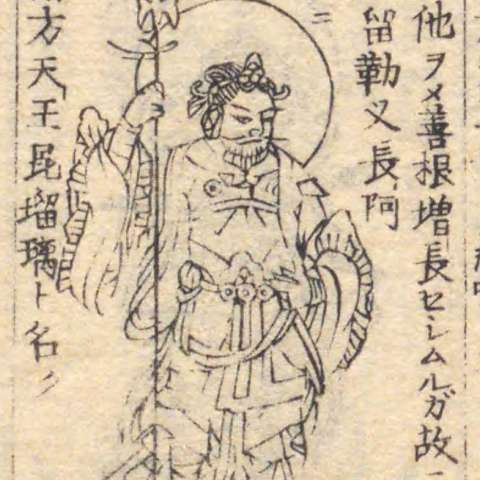 他ヲメ善根増長セシムルガ故
留勒叉長阿
二
方天王毘瑠璃ト名ク